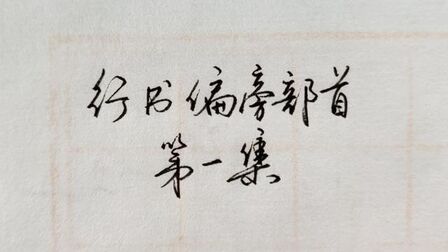 行书偏旁部首
第一集